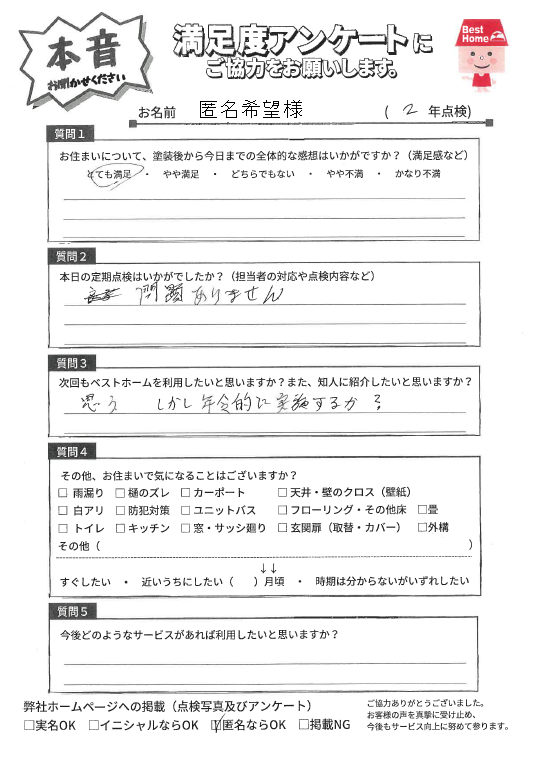 本音
お聞かせください
満足度アンケートに
ご協力をお願いします。
Best
Home
お名前 匿名希望様 ( 2 年点検)
質問1
お住まいについて、塗装後から今日までの全体的な感想はいかがですか？（満足感など）
とても満足 ・ やや満足 ・ どちらでもない ・ やや不満 ・ かなり不満
質問2
本日の定期点検はいかがでしたか？（担当者の対応や点検内容など）
問題ありません
質問3
次回もベストホームを利用したいと思いますか？また、知人に紹介したいと思いますか？
思う しかし年令的に実施するか？
質問4
その他、お住まいで気になることはございますか？
□ 雨漏り □ 樋のズレ □ カーポート □ 天井・壁のクロス（壁紙）
□ 白アリ □ 防犯対策 □ ユニットバス □ フローリング・その他床 □畳
□ トイレ □ キッチン □ 窓・サッシ廻り □ 玄関扉（取替・カバー） □外構
その他（ ）
↓↓
すぐしたい ・ 近いうちにしたい（ ）月頃 ・ 時期は分からないがいずれしたい
質問5
今後どのようなサービスがあれば利用したいと思いますか？
弊社ホームページへの掲載（点検写真及びアンケート）
□実名OK □イニシャルならOK ☑匿名ならOK □掲載NG
ご協力ありがとうございました。
お客様の声を真摯に受け止め、
今後もサービス向上に努めて参ります。